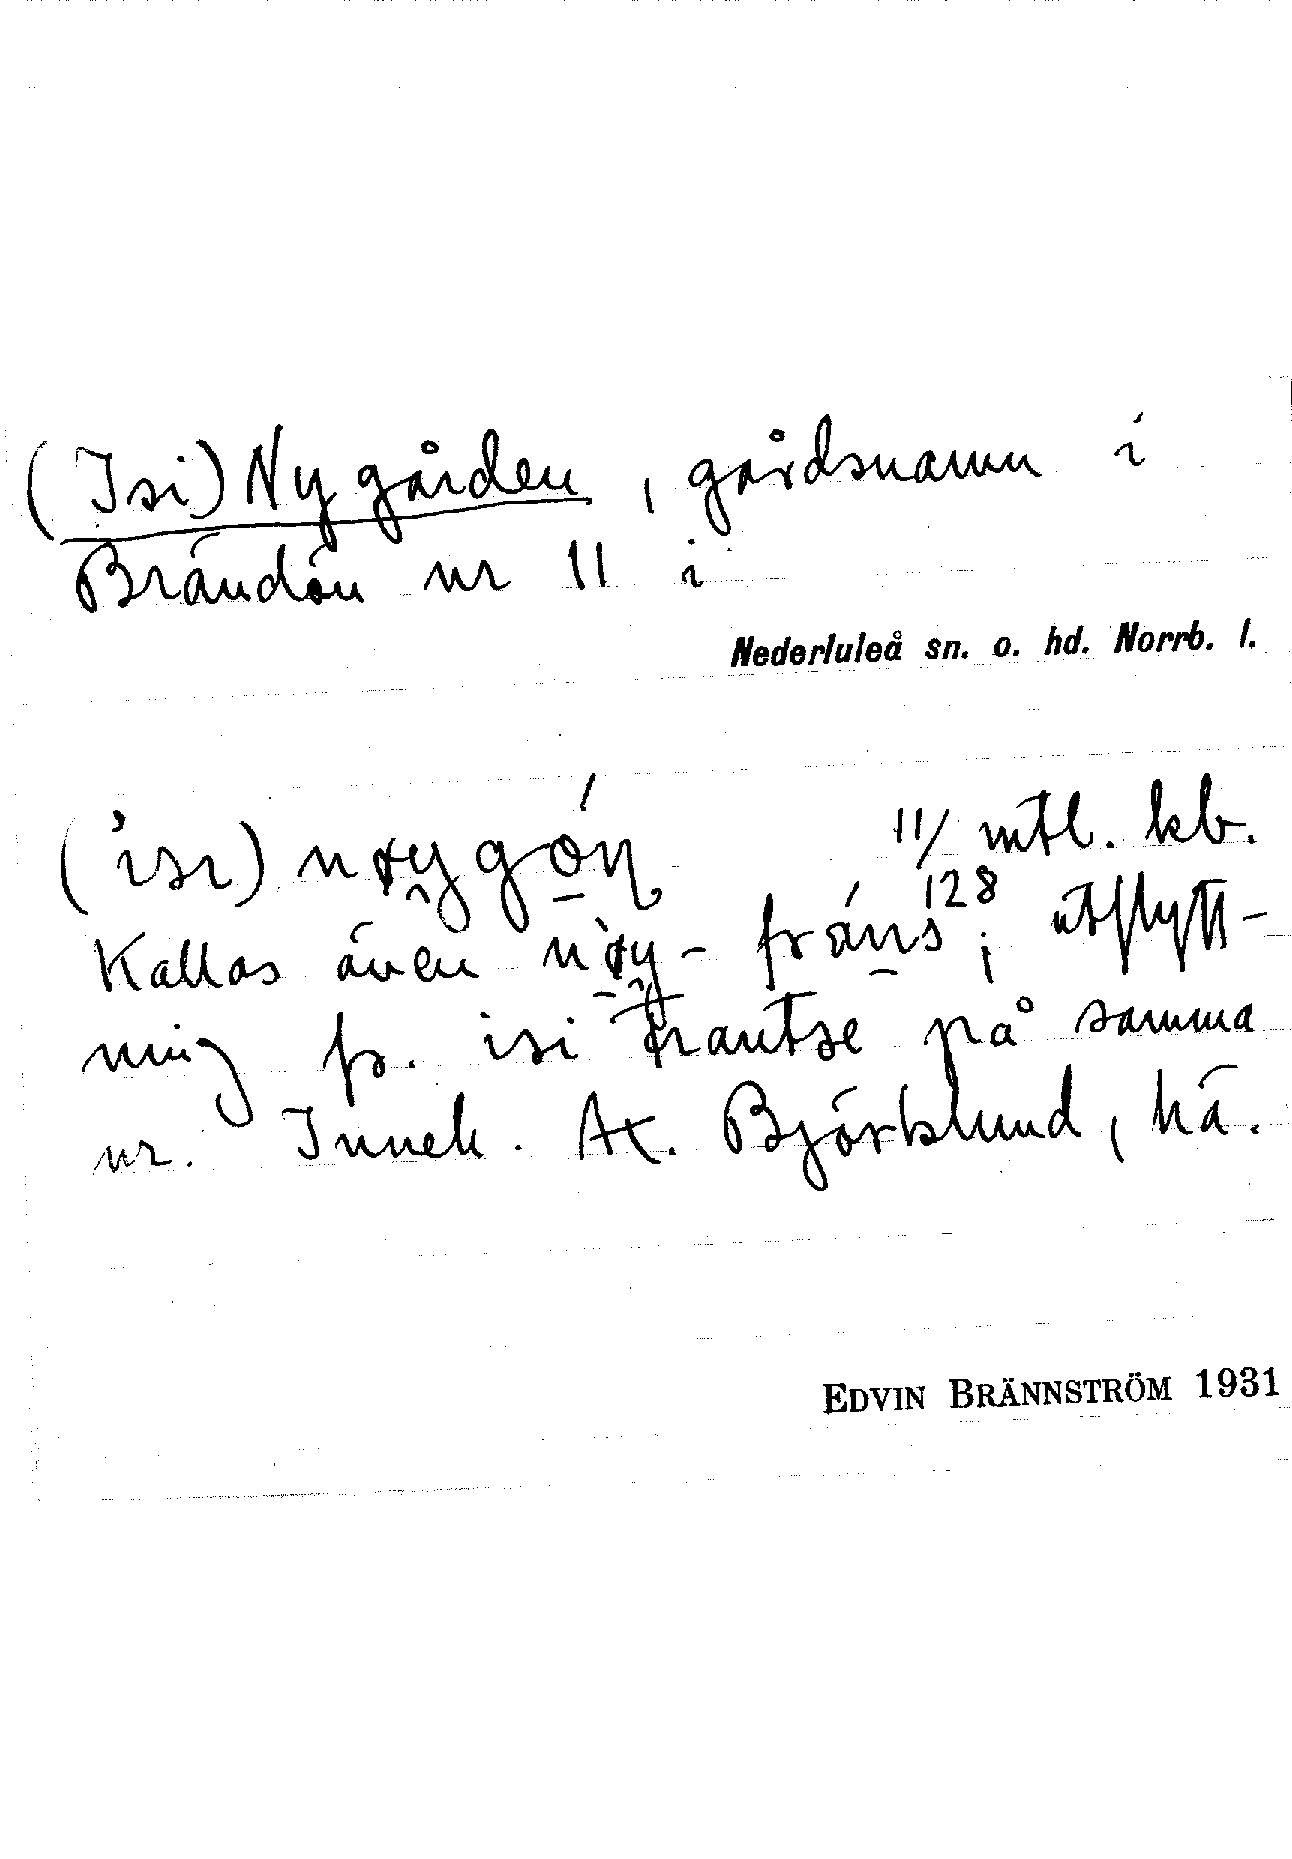 (Isi) Nygården, gårdsnamn i
Brändön nr 11 i
Nederluleå sn. o. hd. Norrb. l.
('isı) nɤygón 11/128 mtl. kb.
Kallas även nɤ̀y-fráns; utflytt-
ning fr. isi Frantse på samma
nr. Inneh. Ax. Björklund, hä.
EDVIN BRÄNNSTRÖM 1931